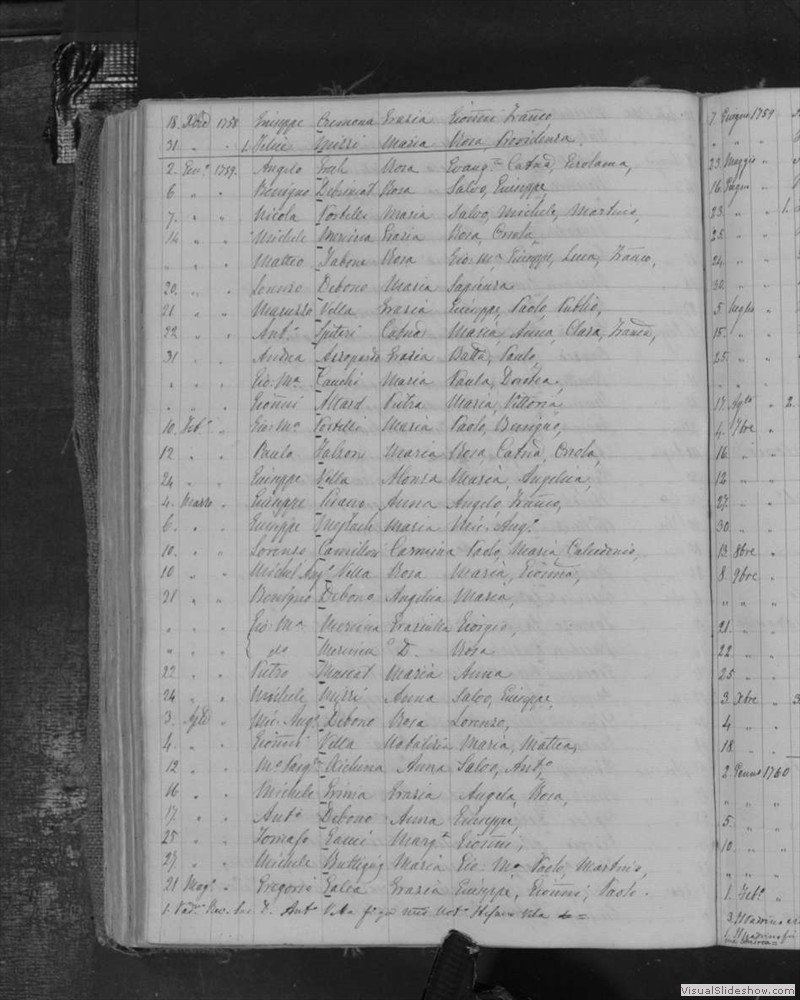 18. Xbre 1758 Giuseppe Cremona Grazia Gionni Franco
31 " " 1. Felice Mizzi Maria Rosa Providenza.
2. Genº 1759. Angelo Grech Rosa Evangta Catna, Gerolama,
6 " " Benigno Rosa Salvo, Giuseppe
7. " " Nicola Portelli Maria Salvo, Michele, Martino,
14 " " Michele Mercieca Grazia Rosa, Orsola,
" " " Matteo Tabone Rosa Gio: Ma, Giuseppe, Luca, Franco,
20. " " Lorenzo Debono Maria Sapienza
21 " " Maruzzo Vella Grazia Giuseppe, Paolo Publio,
22 " " Antº Spiteri Catna Maria Anna, Clara, Franca,
31 " " Andrea Azzopardi Grazia Batta, Paolo,
" " " Gio: Ma Zauchi Maria Paula, Dorotea,
" " " Gionni Attard Pietra Maria, Vittoria
10. Febº " Gio: Ma Portelli Maria Paolo, Benigno,
12 " " Paulo Falzon Maria Rosa, Catna, Orsola,
24 " " Giuseppe Vella Alonza Maria, Angelica,
4. Marzo " Giuseppe Pisano Anna Angelo, Franco,
6. " " Giuseppe Maria Mic: Angº
10. " " Lorenzo Camilleri Carmina Paolo, Maria, Calcedonio,
10 " " Michel Angº Vella Rosa Maria, Gionna,
21 " " Benigno Debono Angelica Maria,
" " " Gio: Ma Mercieca Graziulla Giorgio,
" " " do Mercieca D. Rosa
22 " " Pietro Muscat Maria Anna
24 " " Michele Mizzi Anna Salvo, Giuseppe,
3. Aple " Mic: Angº Debono Rosa Lorenzo,
4 " " Gionni Vella Natalizia Maria, Mattea,
12 " " Xicluna Anna Salvo, Antº
16 " " Michele Grima Grazia Angela, Rosa,
17. " " Antº Debono Anna Giuseppe,
25 " " Tomaso Gauci Margta Gionni,
27. " " Michele Buttigieg Maria Gio: Ma Paolo, Martino,
21 Magº " Gregorio Galea Grazia Giuseppe, Gionni, Paolo.
1. D. Antº Vella Notº Stefano Vella
7 Giugno 1759
" " "
23. Maggio "
16. Giugno "
23. " " 1.
25. " "
24. " "
30. " "
5. Luglio "
15. " "
25. " "
" " "
17. Agto " 2.
4. 7bre "
16 " "
18 " "
27. " "
30. " "
13 8bre "
8. 9bre "
" " "
21. " "
22. " "
25 " "
3. Xbre "
4 " "
18 " "
2. Genno 1760
" " "
5. " "
10. " "
" " "
1. Febº "
VisualSlideshow.com